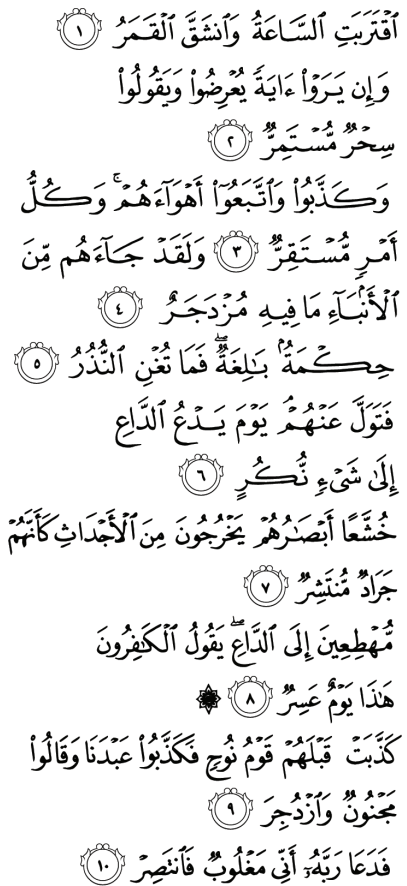 ٱقْتَرَبَتِ ٱلسَّاعَةُ وَٱنشَقَّ ٱلْقَمَرُ ١
وَإِن يَرَوْا۟ ءَايَةً يُعْرِضُوا۟ وَيَقُولُوا۟
سِحْرٌ مُّسْتَمِرٌّ ٢
وَكَذَّبُوا۟ وَٱتَّبَعُوٓا۟ أَهْوَآءَهُمْ ۚ وَكُلُّ
أَمْرٍ مُّسْتَقِرٌّ ٣ وَلَقَدْ جَآءَهُم مِّنَ
ٱلْأَنۢبَآءِ مَا فِيهِ مُزْدَجَرٌ ٤
حِكْمَةٌۢ بَـٰلِغَةٌ ۖ فَمَا تُغْنِ ٱلنُّذُرُ ٥
فَتَوَلَّ عَنْهُمْ ۘ يَوْمَ يَدْعُ ٱلدَّاعِ
إِلَىٰ شَىْءٍ نُّكُرٍ ٦
خُشَّعًا أَبْصَـٰرُهُمْ يَخْرُجُونَ مِنَ ٱلْأَجْدَاثِ كَأَنَّهُمْ
جَرَادٌ مُّنتَشِرٌ ٧
مُّهْطِعِينَ إِلَى ٱلدَّاعِ ۖ يَقُولُ ٱلْكَـٰفِرُونَ
هَـٰذَا يَوْمٌ عَسِرٌ ٨ ۞
كَذَّبَتْ قَبْلَهُمْ قَوْمُ نُوحٍ فَكَذَّبُوا۟ عَبْدَنَا وَقَالُوا۟
مَجْنُونٌ وَٱزْدُجِرَ ٩
فَدَعَا رَبَّهُۥٓ أَنِّى مَغْلُوبٌ فَٱنتَصِرْ ١٠